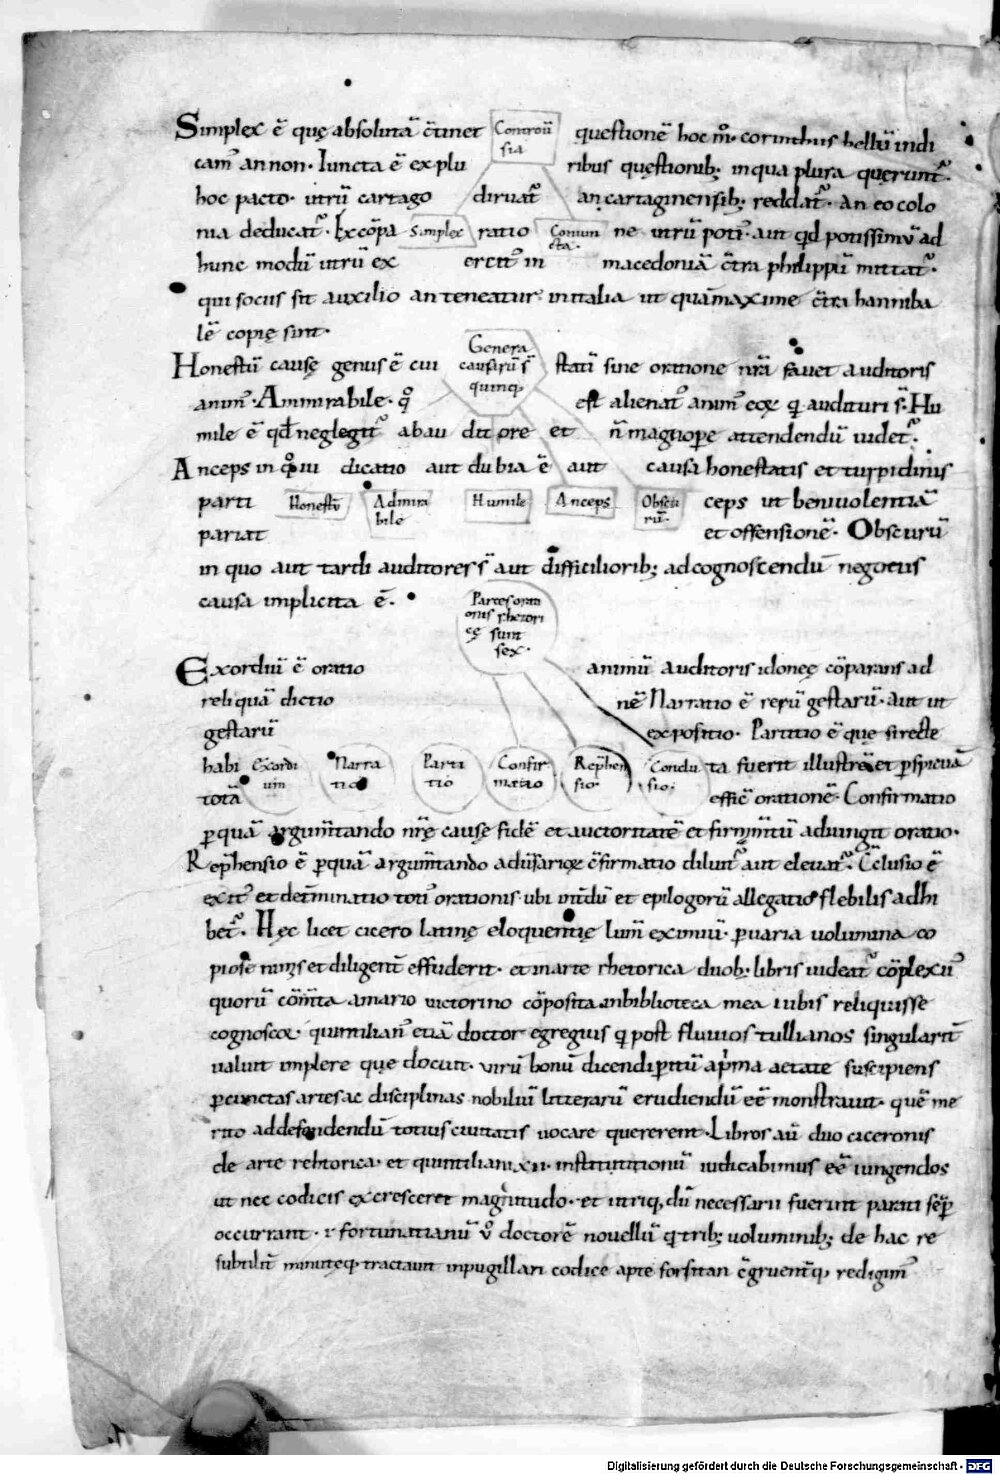 Simplex ē quę absolutā c̄tinet Controū questionē hoc m̊· corinthiis bellū indi
sia
cam᷒ an non· Iuncta ē ex plu ribus quęstionib; in qua plura querunt᷒·
hoc pacto· utrū cartago diruat᷒ an cartaginensib; reddat᷒· An eo colo
nia deducat᷒· Ex cōpa Simplex ratio Coniun ne utrū poti᷒· aut qd potissimū ad
cta·
hunc modū utrū ex ercit᷒ in macedoniā c̄tra philippū mittat᷒·
qui sociis sit auxilio an teneatur in italia ut quāmaxime c̄tra hanniba
lē copię sint·
Genera
Honestū causę genus ē cui causarū s̄ statī sine oratione nr̄a fauet auditoris
quinq;
anim᷒· Ammirabile· q̊ est alienat᷒ anim᷒ eoꝝ qi audituri s̄· Hu
mile ē qd neglegit᷒ ab au ditore et n̄ magnopere attendendū uidet᷒·
Anceps in q̊ iu dicatio aut dubia ē aut causa honestatis et turpidinis
parti Honestū Admira Humile Anceps Obscu ceps ut beniuolentiā
bile rū·
pariat et offensionē· Obscurū
in quo aut tardi auditores s̄ aut difficiliorib; ad cognoscendū negotiis
causa implicita ē·
Partes orati
onis rhetori
cę sunt
sex·
Exordiū ē oratio animū auditoris idonee cōparans ad
reliquā dictio nē Narratio ē rerū gestarū· aut ut
gestarū expositio· Partitio ē quę si recte
habi Exordi Narra Parti Confir Rep̄hen Conclu ta fuerit illustrē et p̱spicuā
um tio tio matio sio· sio;
totā efficē orationē· Confirmatio
ꝑ quā argum̄tando nr̄ę causę fidē et auctoritatē et firmam̄tū adiungit oratio·
Rep̄hensio ē ꝑ quā argum̄tando aduersarioꝝ c̄firmatio diluit᷒ aut eleuat᷒· C̄clusio ē
exit᷒ et det̄minatio toti᷒ orationis· ubi int̄dū et epilogorū allegatio flebilis adhi
bet᷒· Hęc licet cicero latinę eloquentię lum̄ eximiū· ꝑ uaria uolumina co
piose nimis et diligent̄ effuderit· et in arte rhetorica duob; libris uideat᷒ cōplexu᷒
quorū com̄ta a mario uictorino cōposita in biblioteca mea uobis reliquisse
cognoscor· quintilian᷒ etiā doctor egregius q post fluuios tullianos singularit̄
ualuit implere que docuit· uirū bonū dicendi ꝑitū a prima aetate suscipiens
ꝑ cunctas artes ac disciplinas nobiliū litterarū erudiendū eē monstrauit· quē me
rito ad defendendū totius ciuitatis uocare quererent· Libros aū duo ciceronis
de arte rehtorica· et quintiliani xii· institutionū iudicabimus eē iungendos
ut nec codicis excresceret magnitudo· et utriq; dū necessarii fuerint parati semp
occurrant· fortunatianū ů doctorē nouellū q trib; uoluminib; de hac re
subtilit̄ minuteq; tractauit in pugillari codice apte forsitan c̄gruent̄q; redigim᷒
Digitalisierung gefördert durch die Deutsche Forschungsgemeinschaft - DFG